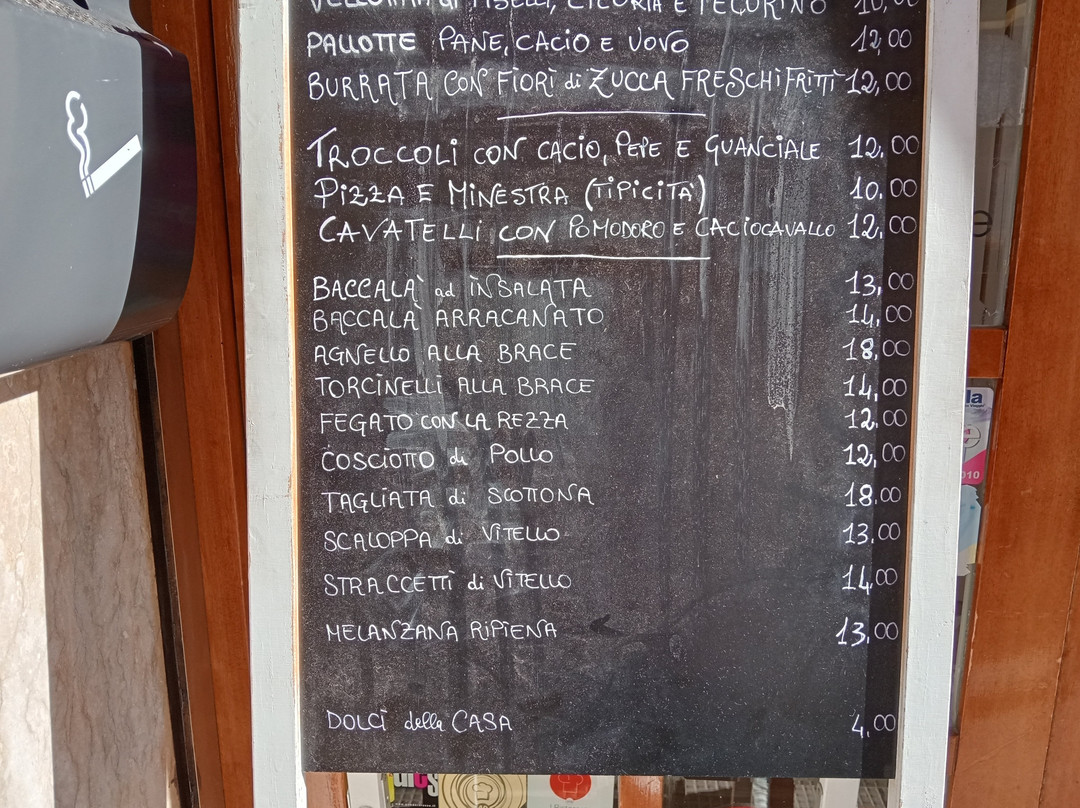 VELLUTATA di PISELLI, CICORIA E PECORINO 10,00
PALLOTTE PANE, CACIO E UOVO 12,00
BURRATA CON FIORI di ZUCCA FRESCHI FRITTI 12,00
TROCCOLI CON CACIO, PEPE E GUANCIALE 12,00
PIZZA E MINESTRA (TIPICITA') 10,00
CAVATELLI CON POMODORO E CACIOCAVALLO 12,00
BACCALÀ ad INSALATA 13,00
BACCALÀ ARRACANATO 14,00
AGNELLO ALLA BRACE 18,00
TORCINELLI ALLA BRACE 14,00
FEGATO CON LA REZZA 12,00
COSCIOTTO di POLLO 12,00
TAGLIATA di SCOTTONA 18,00
SCALOPPA di VITELLO 13,00
STRACCETTI di VITELLO 14,00
MELANZANA RIPIENA 13,00
DOLCI della CASA 4,00
la
010